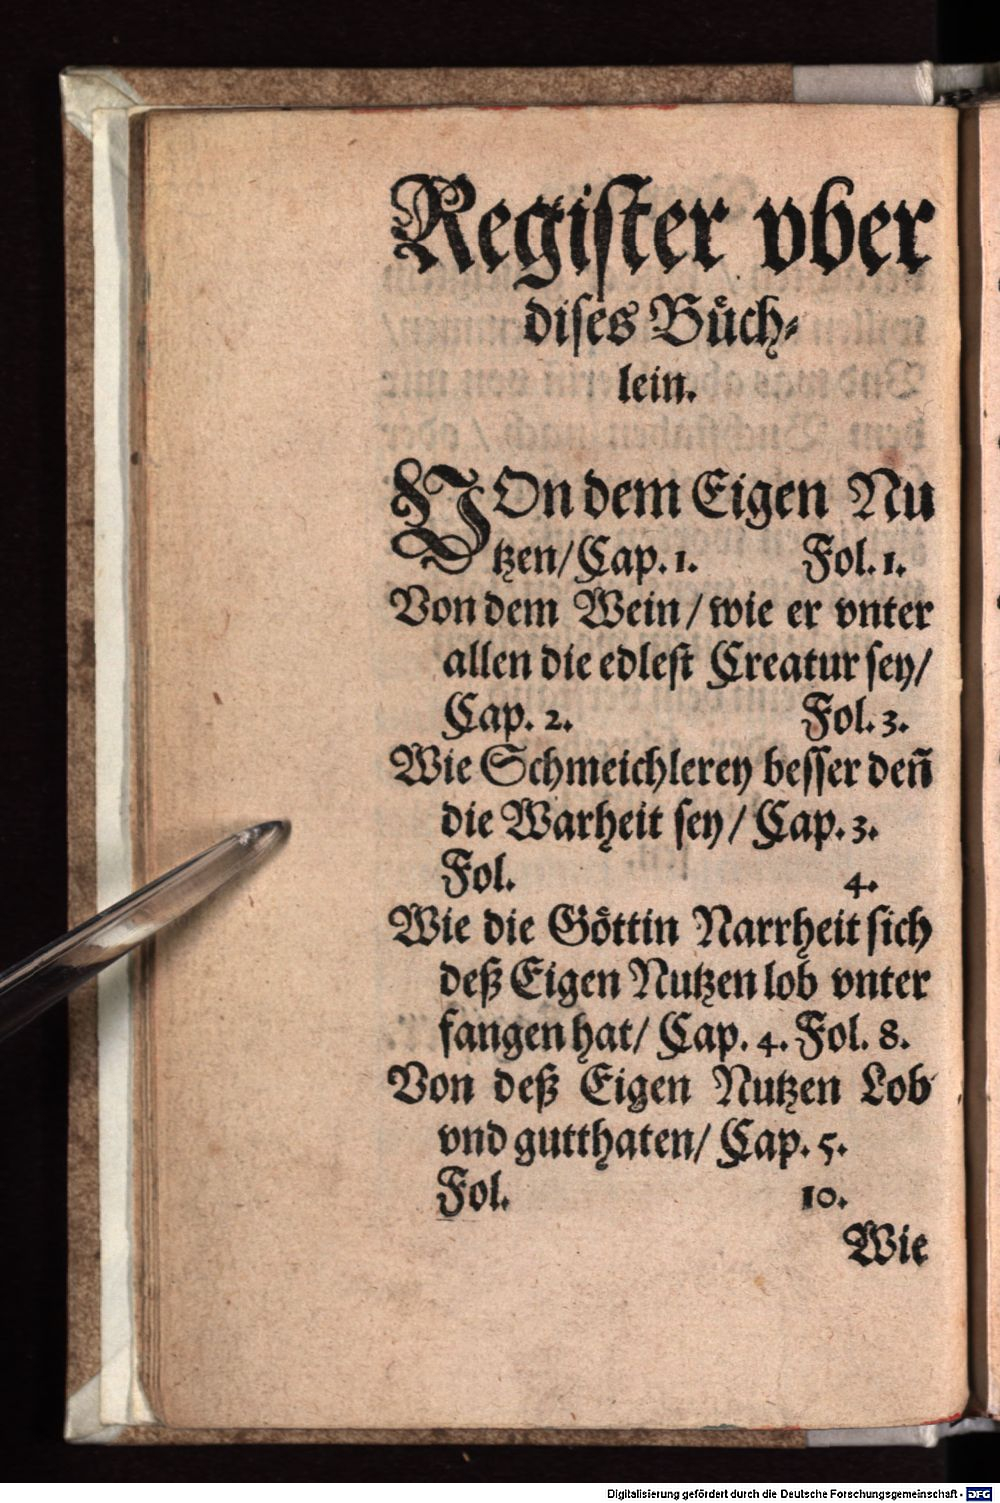 Register vber
dises Bůch-
lein.
VOn dem Eigen Nu
tzen/ Cap. 1. Fol. 1.
Von dem Wein / wie er vnter
allen die edlest Creatur sey/
Cap. 2. Fol. 3.
Wie Schmeichlerey besser deñ
die Warheit sey / Cap. 3.
Fol. 4.
Wie die Göttin Narrheit sich
deß Eigen Nutzen lob vnter
fangen hat/ Cap. 4. Fol. 8.
Von deß Eigen Nutzen Lob
vnd gutthaten/ Cap. 5.
Fol. 10.
Wie
Digitalisierung gefördert durch die Deutsche Forschungsgemeinschaft - DFG